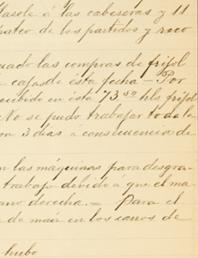 á las cabeceras y 11
de los partidos y
las compras de frijol
de ésta fecha — Por
recibido en ésta 73 50 hls frijol
no se pudo trabajar toda la
3 dias a consecuencia de
las máquinas para desgra-
trabajo debido a que el ma-
ano derecha. — Para el
de maiz en los carros de
hubo